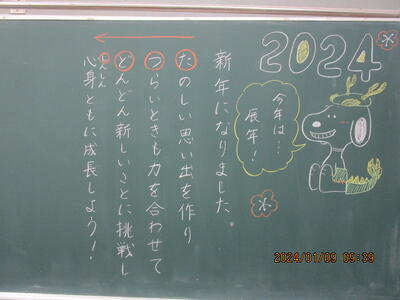 2024
今年は…
辰年！
新年になりました。
たのしい思い出を作り
つらいときも力を合わせて
どんどん新しいことに挑戦し
心身ともに成長しよう！
しんしん
2024/01/09 09:39